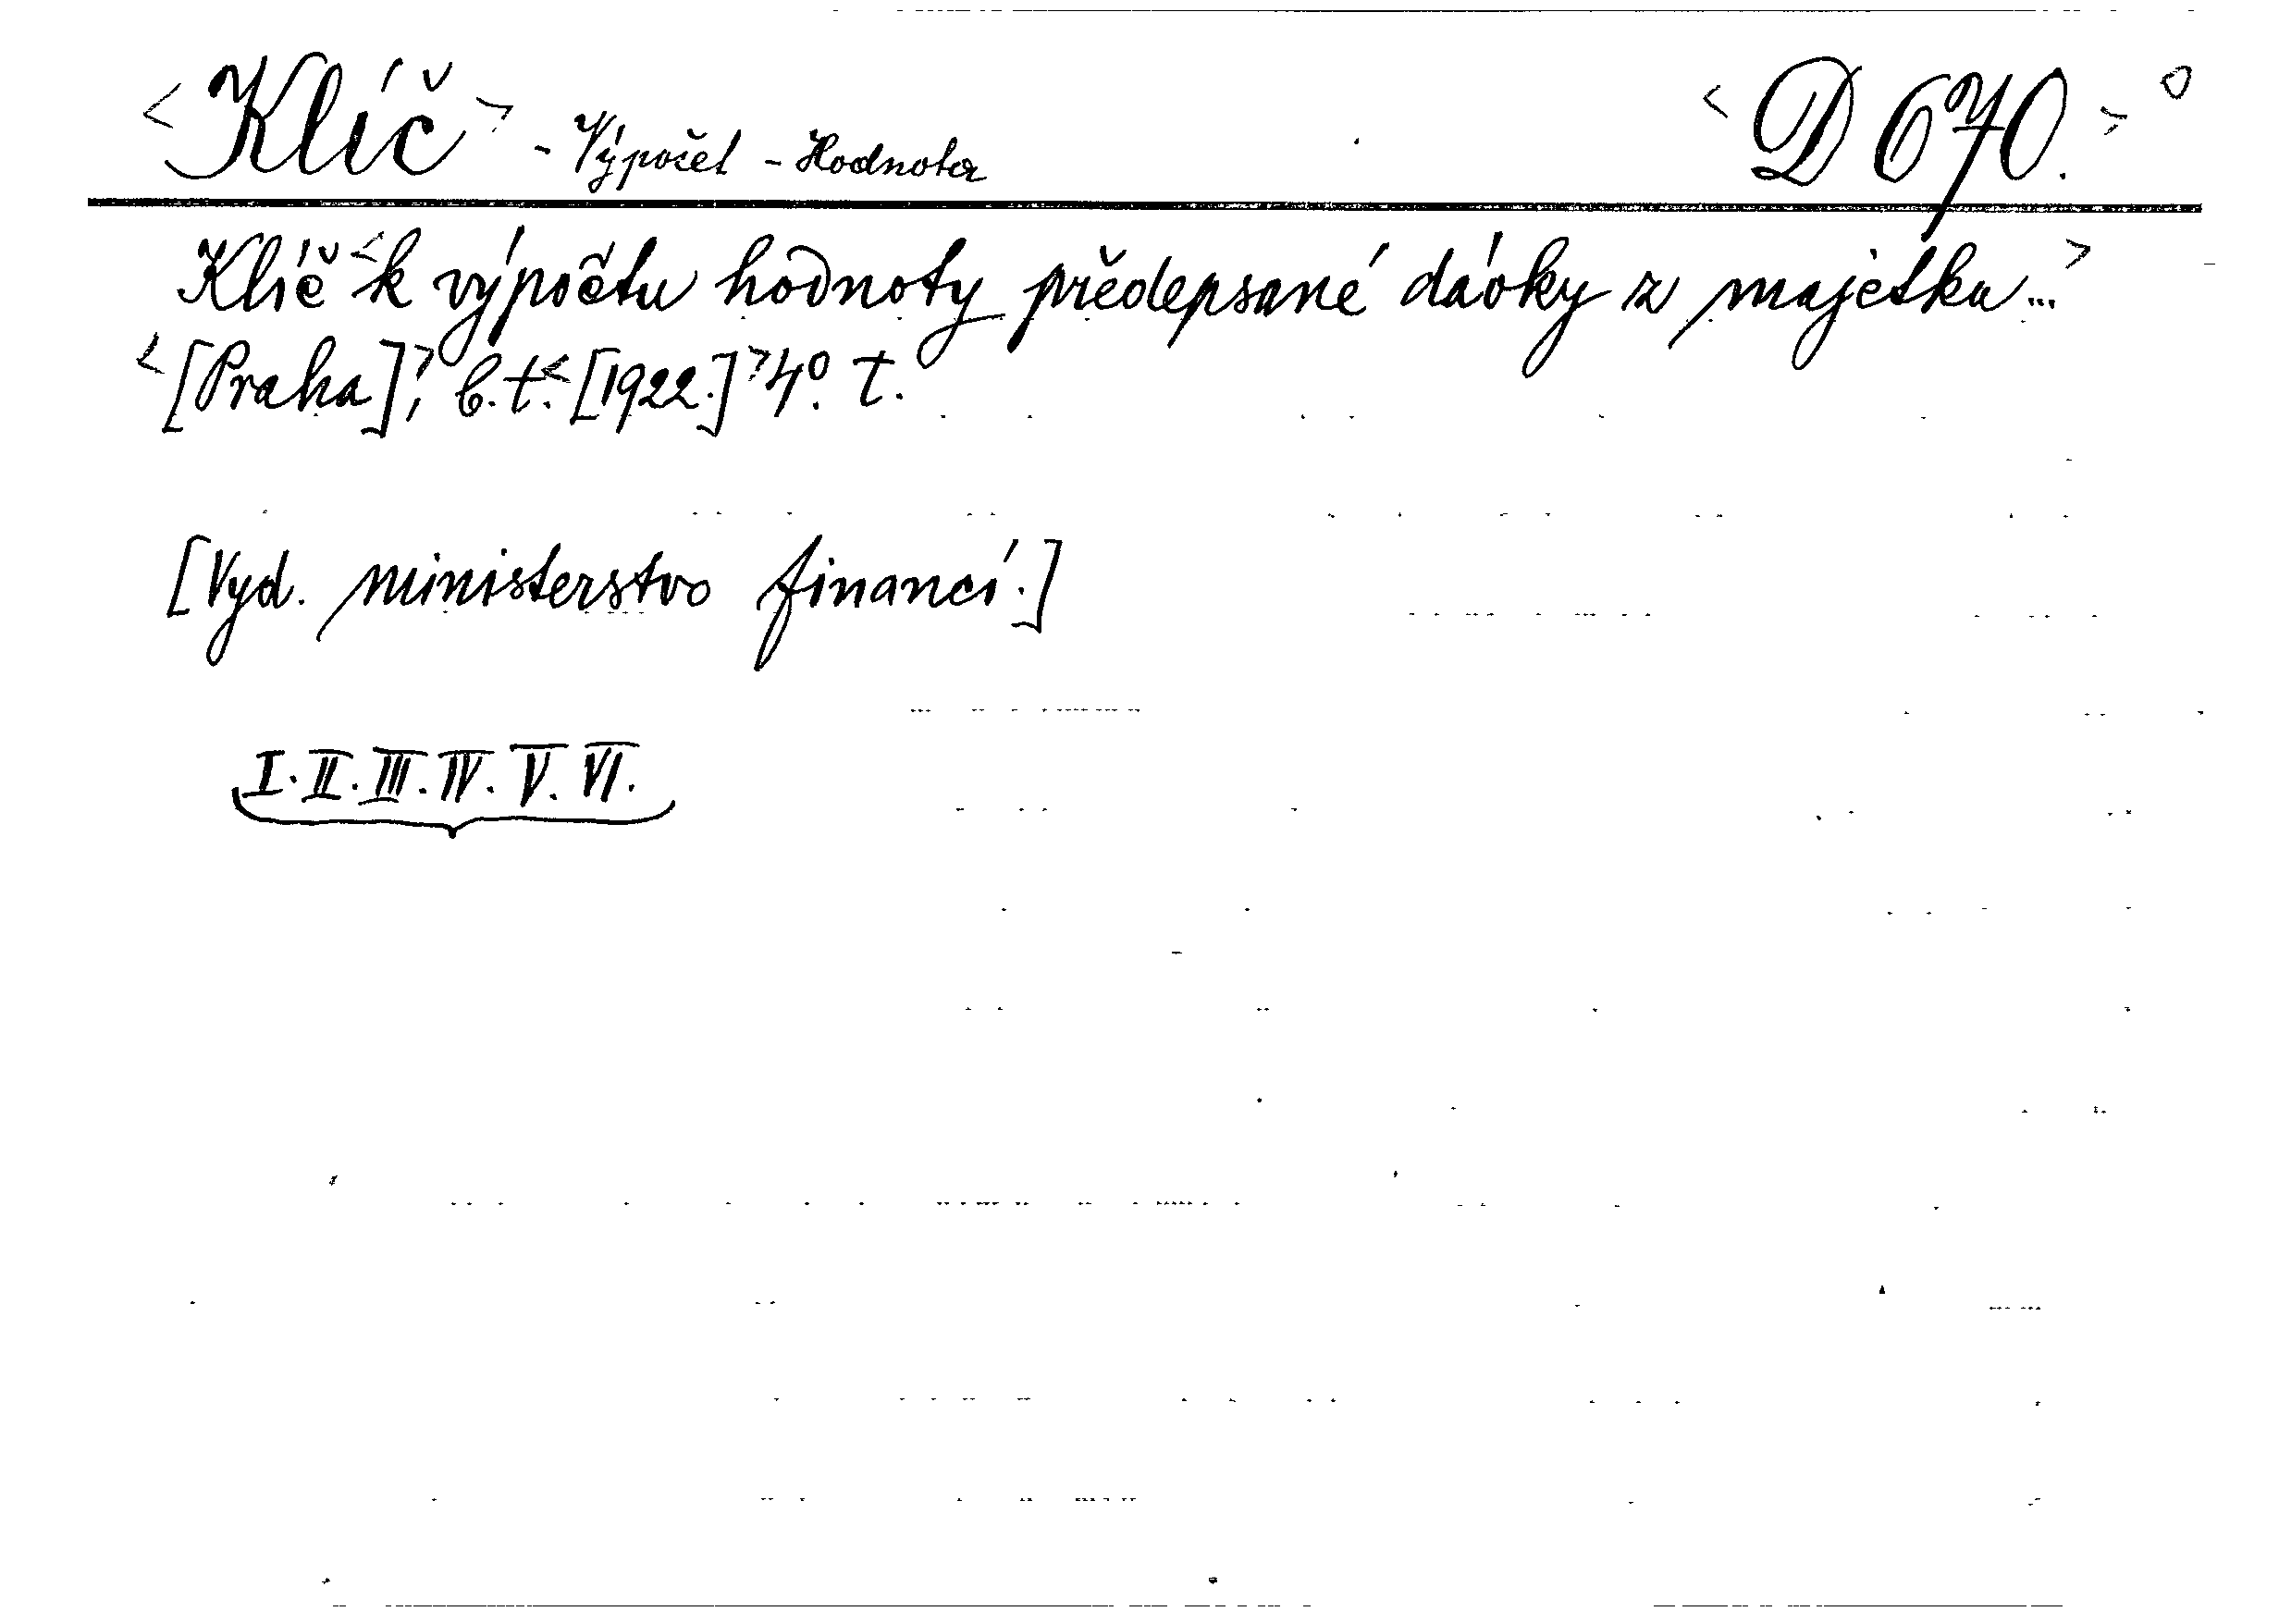 <Klíč> - Výpočet - Hodnota <D 670.> o
Klíč <k výpočtu hodnoty předepsané dávky z majetku...>
<[Praha],> b. t. <[1922.]> 4°. T.
[Vyd. ministerstvo financí.]
I. II. III. IV. V. VI.